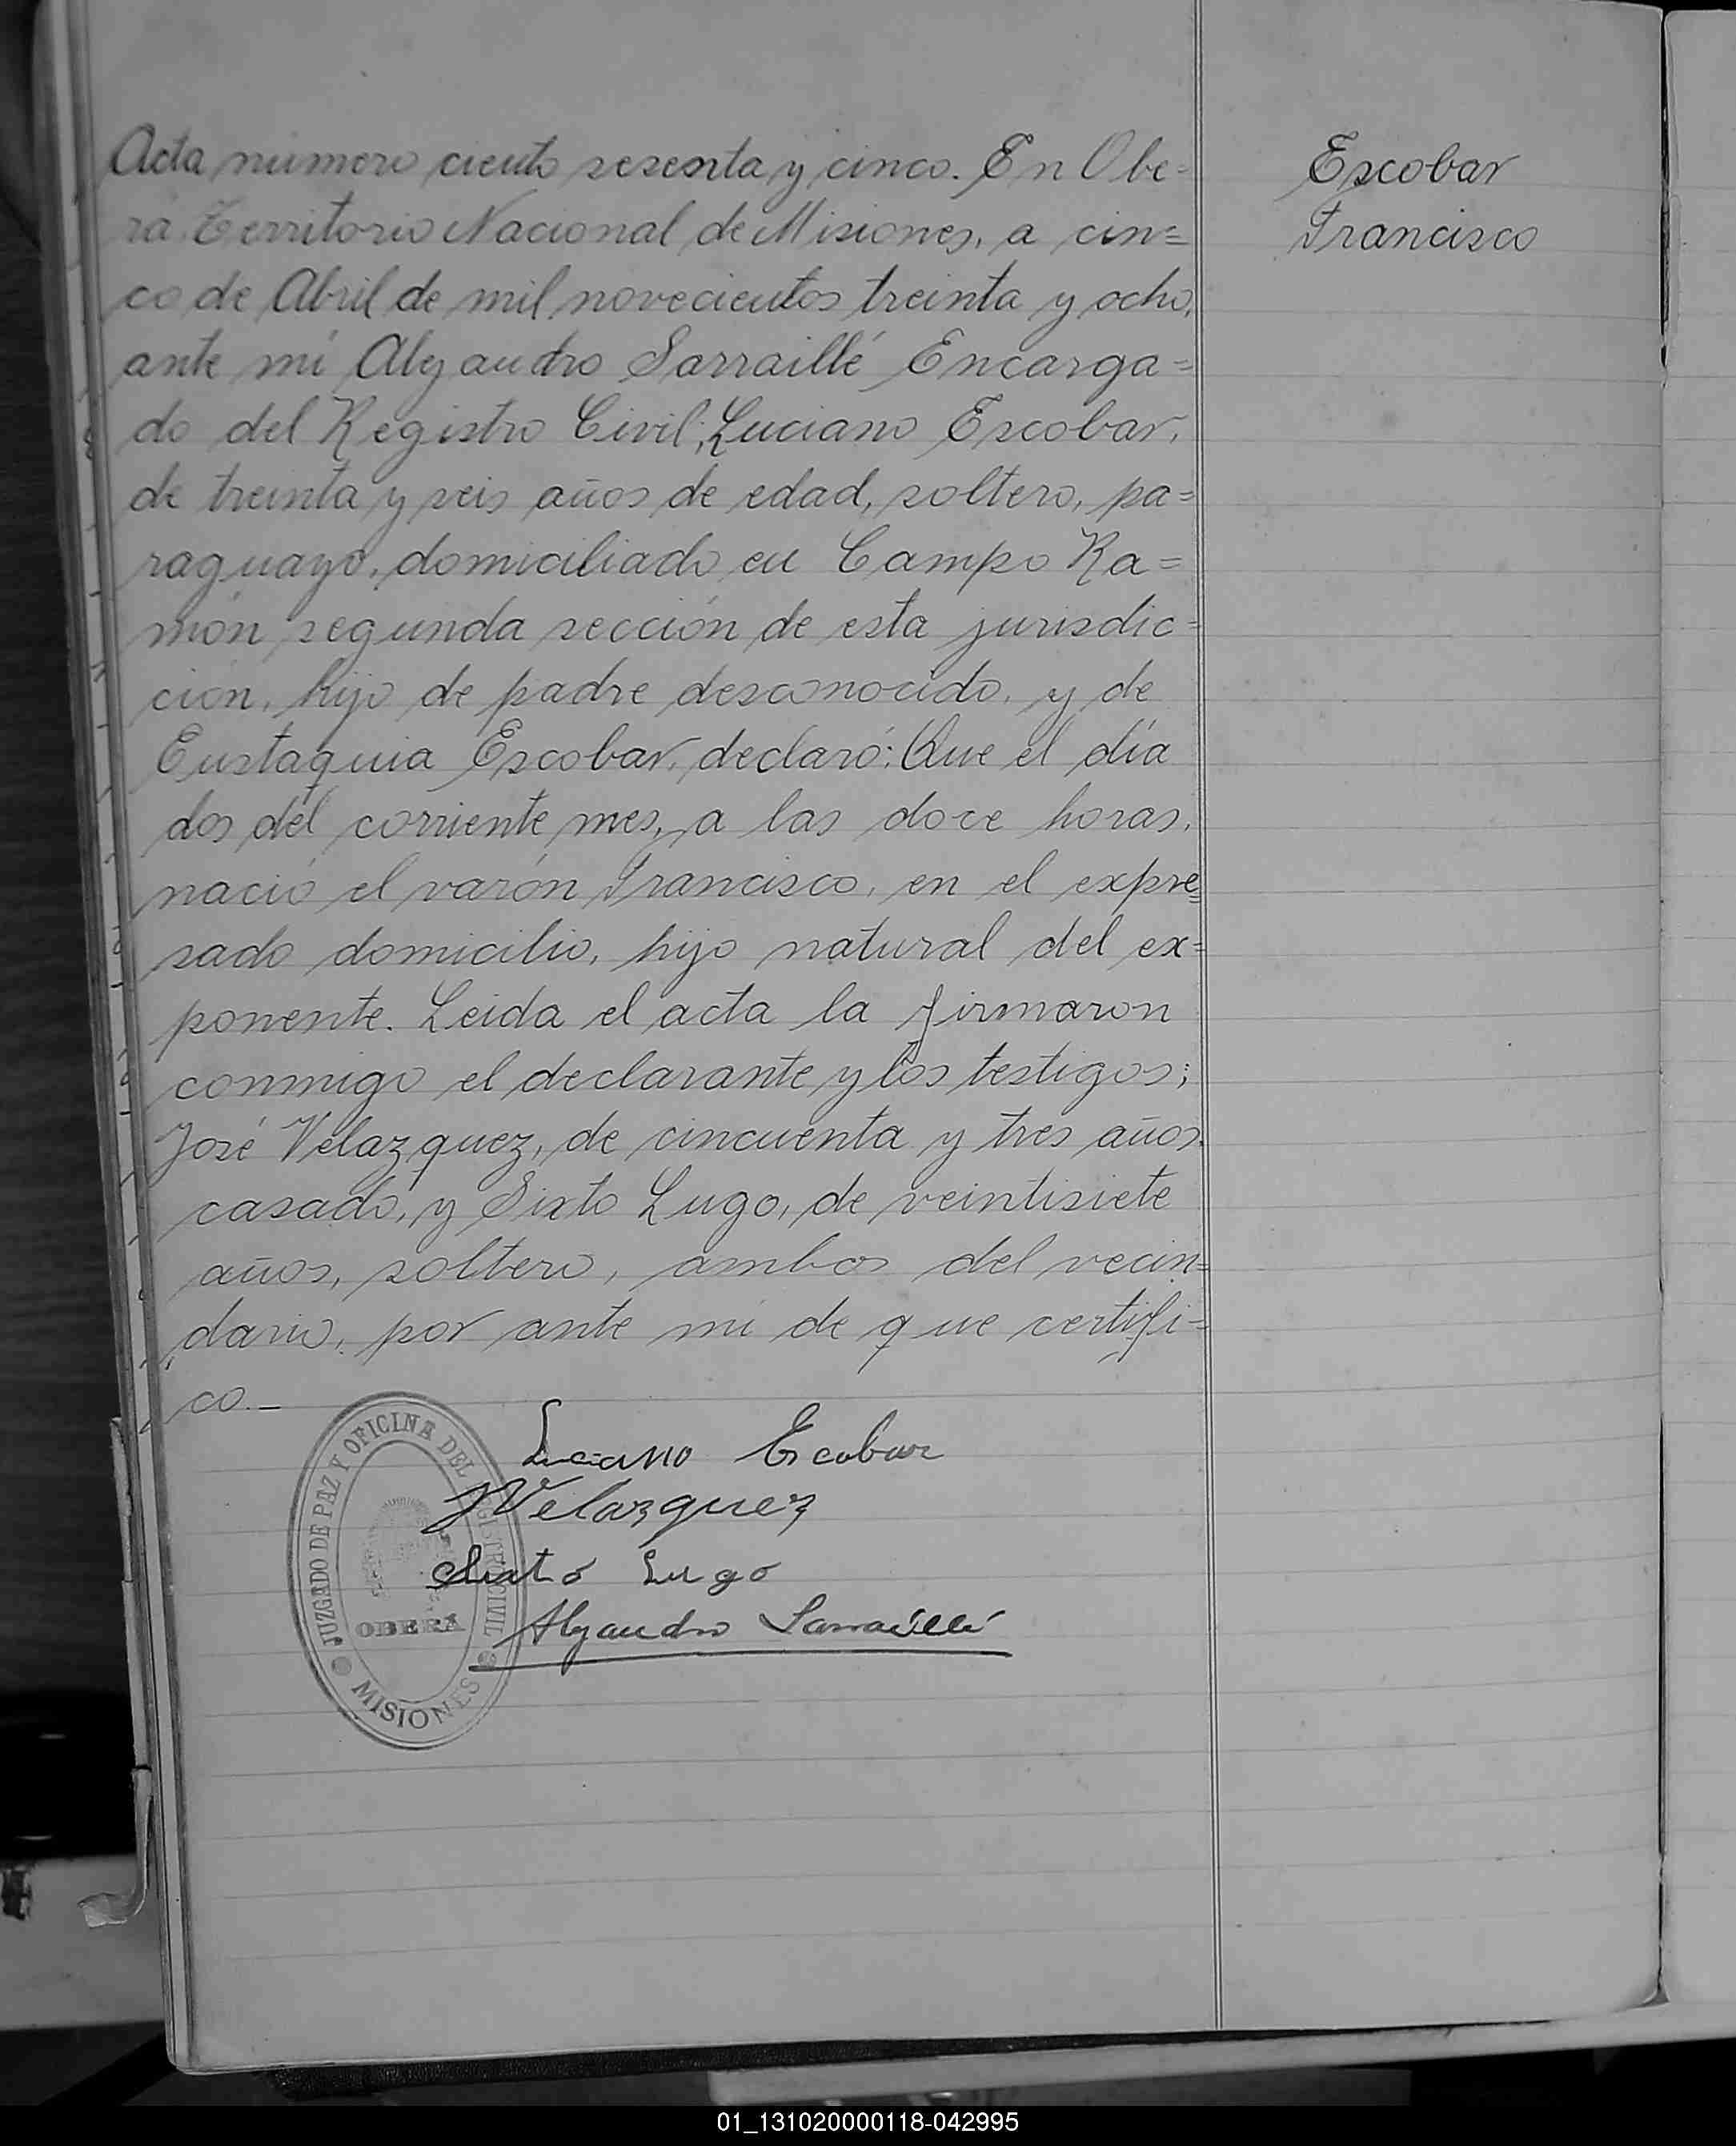 Acta número ciento sesenta y cinco. En Obe=
rá Territorio Nacional de Misiones, a cin=
co de Abril de mil novecientos treinta y ocho,
ante mí Alejandro Sarraillé Encarga=
do del Registro Civil; Luciano Escobar,
de treinta y seis años de edad, soltero, pa=
raguayo, domiciliado en Campo Ra=
món segunda sección de esta jurisdic=
ción, hijo de padre desconocido, y de
Eustaquia Escobar, declaró: Que el día
dos del corriente mes, a las doce horas,
nació el varón Francisco, en el expre=
sado domicilio, hijo natural del ex=
ponente. Leida el acta la firmaron
conmigo el declarante y los testigos;
José Velazquez, de cincuenta y tres años
casado, y Sixto Lugo, de veintisiete
años, soltero, ambos del vecin=
dario, por ante mí de que certifi=
co.—
Escobar
Francisco
Luciano Escobar
JVelazquez
Sixto Lugo
Alejandro Sarraillé
JUZGADO DE PAZ Y OFICINA DEL REGISTRO CIVIL
OBERA
MISIONES
01_131020000118-042995